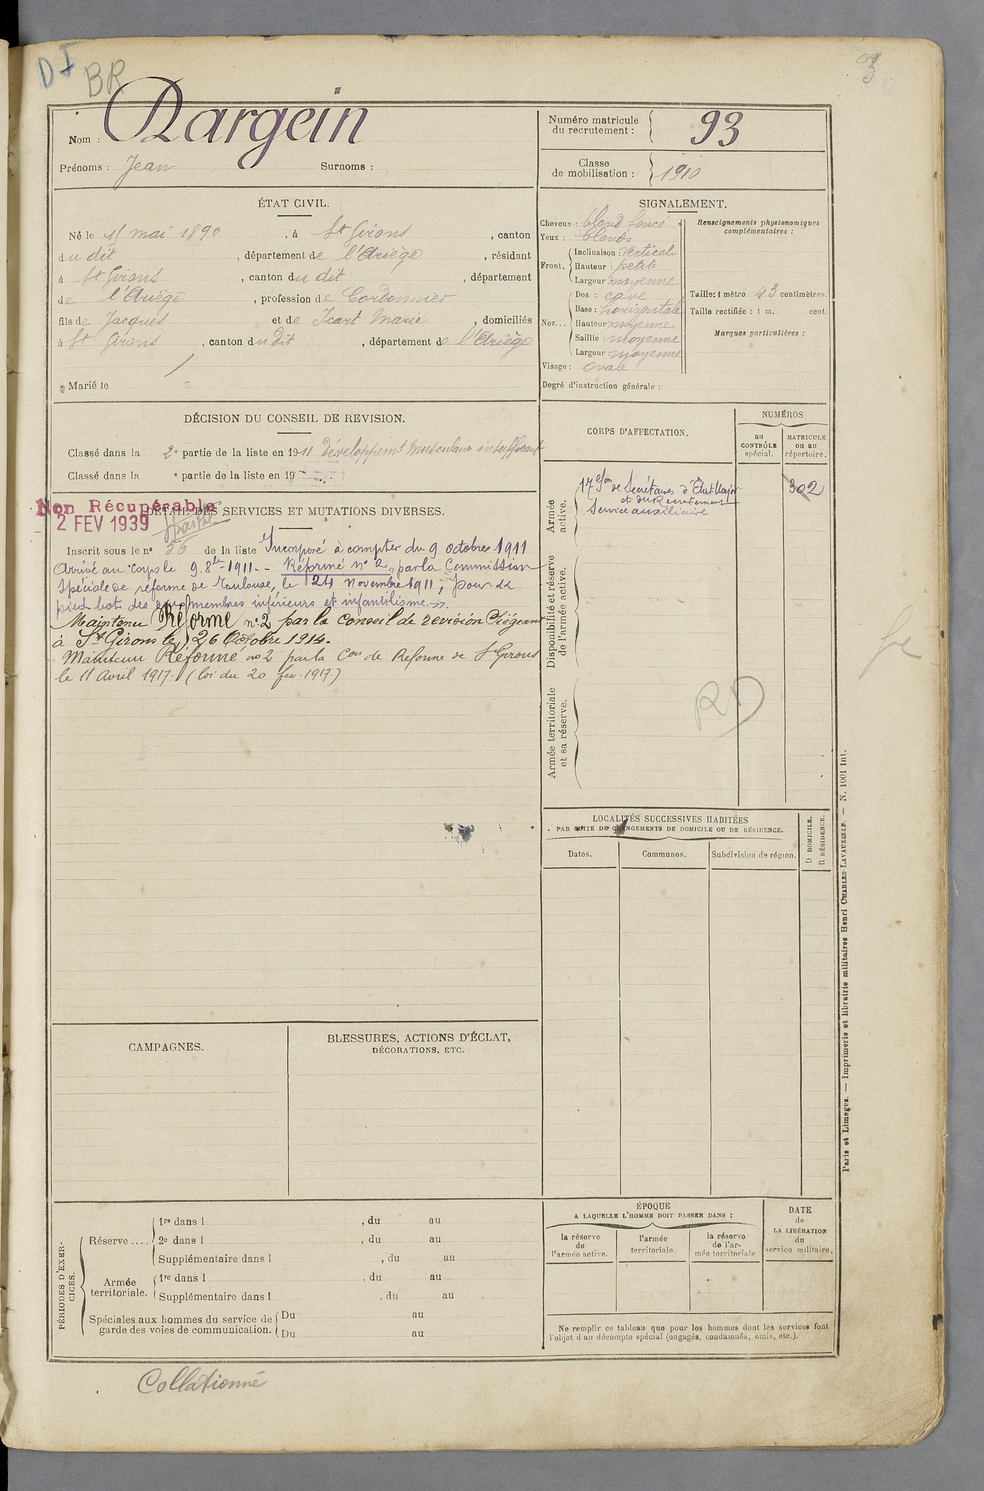 DI
BR
93
Nom : Dargein
Prénoms : Jean Surnoms :
Numéro matricule du recrutement : 93
Classe de mobilisation : 1910
ÉTAT CIVIL.
Né le 15 mai 1890, à St Girons, canton
du dit, département de l'Ariège, résidant
à St Girons, canton du dit, département
de l'Ariège, profession de Cordonnier
fils de Jacques et de Icart Marie, domiciliés
à St Girons, canton du dit, département de l'Ariège
Marié le
SIGNALEMENT.
Cheveux : blond foncé
Yeux : blonds
Front. Inclinaison : verticale
Hauteur : petite
Largeur moyenne
Nez... Dos : cave
Base : horizontale
Hauteur moyenne
Saillie : moyenne
Largeur : moyenne
Visage : ovale
Degré d'instruction générale :
Renseignements physionomiques complémentaires :
Taille : 1 mètre 43 centimètres.
Taille rectifiée : 1 m. cent.
Marques particulières :
DÉCISION DU CONSEIL DE REVISION.
Classé dans la 2e partie de la liste en 1911 développemt musculaire insuffisant
Classé dans la e partie de la liste en 19
Non Récupérable
2 FEV 1939
DÉTAIL DES SERVICES ET MUTATIONS DIVERSES.
Inscrit sous le n° 36 de la liste Incorporé à compter du 9 octobre 1911
Arrivé au corps le 9. 8bre 1911.- Réformé n° 2, par la Commission
Spéciale de réforme de Toulouse, le 24 Novembre 1911, pour
pied bot des deux membres inférieurs et infantilisme.
Maintenu Réformé n° 2 par la conseil de révision Siégeant
à St Girons le 26 Octobre 1914.
Maintenu Réformé no 2 par la Con de Réforme de St Girons
le 11 Avril 1917. (loi du 20 fev. 1917)
CORPS D'AFFECTATION.
NUMÉROS
au CONTRÔLE spécial.
MATRICULE ou au répertoire.
Armée active.
17e Son de Secrétaires d'État Major
et du Recrutement
Service auxiliaire
302
Disponibilité et réserve de l'armée active.
Armée territoriale et sa réserve.
RD
LOCALITÉS SUCCESSIVES HABITÉES
PAR SUITE DE CHANGEMENTS DE DOMICILE OU DE RÉSIDENCE.
Dates. Communes. Subdivision de région. D DOMICILE. R RÉSIDENCE.
CAMPAGNES.
BLESSURES, ACTIONS D'ÉCLAT,
DÉCORATIONS, ETC.
PÉRIODES D'EXERCICES.
Réserve .... 1re dans l , du au
2e dans l , du au
Supplémentaire dans l , du au
Armée territoriale. 1re dans l , du au
Supplémentaire dans l , du au
Spéciales aux hommes du service de garde des voies de communication. Du au
Du au
ÉPOQUE
A LAQUELLE L'HOMME DOIT PASSER DANS :
la réserve de l'armée active.
l'armée territoriale.
la réserve de l'armée territoriale
DATE de LA LIBÉRATION du service militaire.
Ne remplir ce tableau que pour les hommes dont les services font
l'objet d'un décompte spécial (engagés, condamnés, omis, etc.).
Paris et Limoges. — Imprimerie et librairie militaires Henri CHARLES-LAVAUZELLE. — N. 1001 int.
Collationné